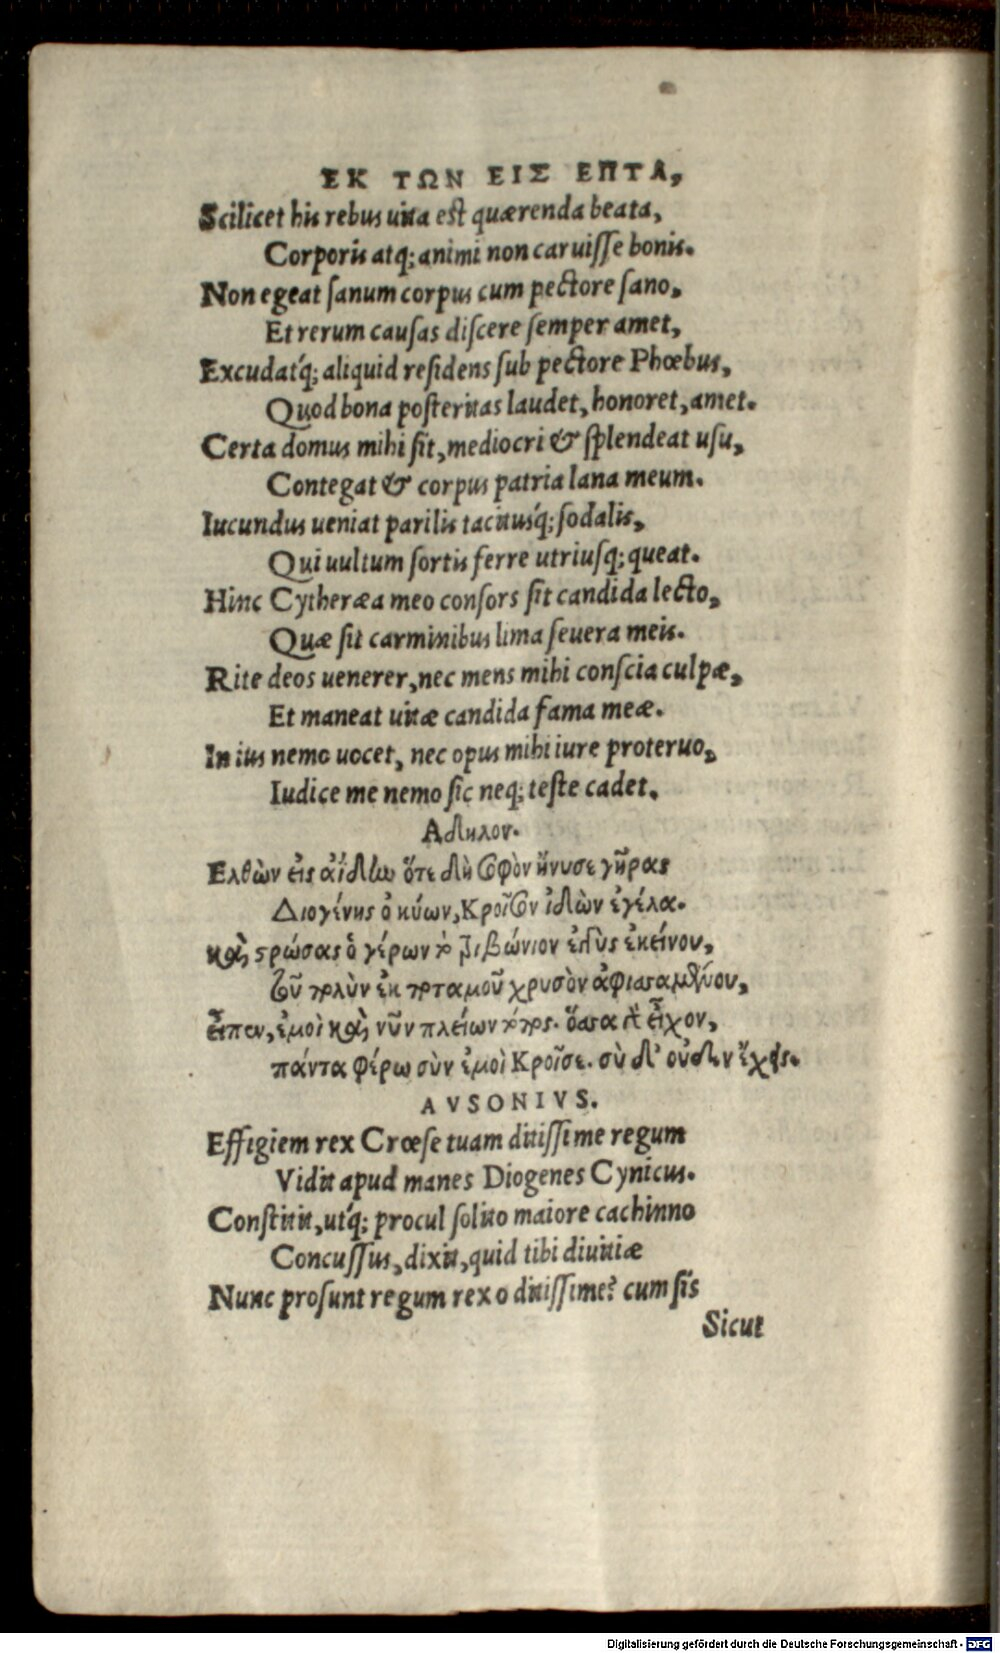 ΕΚ ΤΩΝ ΕΙΣ ΕΠΤΑ,
Scilicet his rebus uita est quærenda beata,
Corporis atq; animi non caruisse bonis.
Non egeat sanum corpus cum pectore sano,
Et rerum causas discere semper amet,
Excudatq́; aliquid residens sub pectore Phœbus,
Quod bona posteritas laudet, honoret, amet.
Certa domus mihi sit, mediocri & splendeat usu,
Contegat & corpus patria lana meum.
Iucundus ueniat parilis tacitusq́; sodalis,
Qui uultum sortis ferre utriusq; queat.
Hinc Cytheræa meo consors sit candida lecto,
Quæ sit carminibus lima seuera meis.
Rite deos uenerer, nec mens mihi conscia culpæ,
Et maneat uitæ candida fama meæ.
In ius nemo uocet, nec opus mihi iure proteruo,
Iudice me nemo sic neq; teste cadet.
Αδηλον.
Ελθὼν εἰς ἀΐδην ὅτε δὴ σοφὸν ἤνυσε γῆρας
Διογένης ὁ κύων, Κροῖσον ἰδὼν ἐγέλα.
καὶ στρώσας ὁ γέρων τὸ τριβώνιον ἐγγὺς ἐκείνου,
τοῦ πολὺν ἐκ ποταμοῦ χρυσὸν ἀφυσσαμένου,
εἶπεν, ἐμοὶ καὶ νῦν πλείων τόπος. ὅσσα γὰρ εἶχον,
πάντα φέρω σὺν ἐμοὶ Κροῖσε. σὺ δ' οὐδὲν ἔχεις.
AVSONIVS.
Effigiem rex Crœse tuam ditissime regum
Vidit apud manes Diogenes Cynicus.
Constitit, utq́; procul solito maiore cachinno
Concussus, dixit, quid tibi diuitiæ
Nunc prosunt regum rex o ditissime? cum sis
Sicut
Digitalisierung gefördert durch die Deutsche Forschungsgemeinschaft - DFG